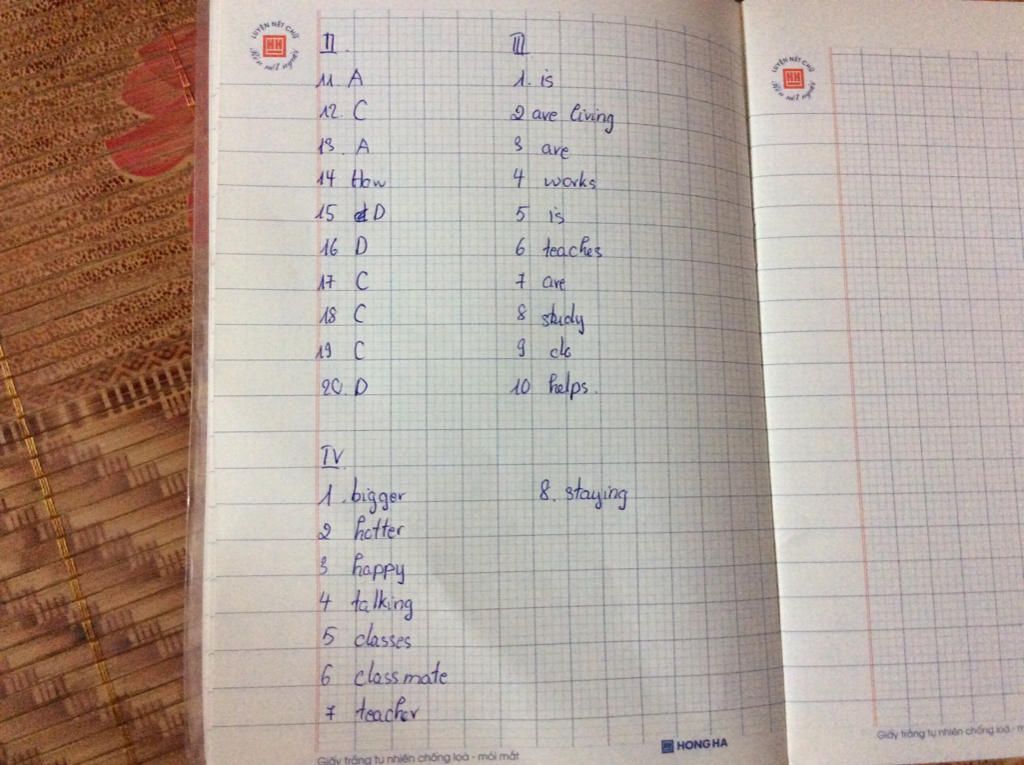 LUYỆN NÉT CHỮ
HH
Rèn nết người
II.
11. A
12. C
13. A
14 How
15 D
16 D
17 C
18 C
19 C
20. D
III
1. is
2 are living
3 are
4 works
5 is
6 teaches
7 are
8 study
9 do
10 helps.
IV
1. bigger
2 hotter
3 happy
4 talking
5 classes
6 classmate
7 teacher
8. staying
Giấy trắng tự nhiên chống loá - mỏi mắt
HONG HA
LUYỆN NÉT CHỮ
HH
Rèn nết người
Giấy trắng tự nhiên chống loá -